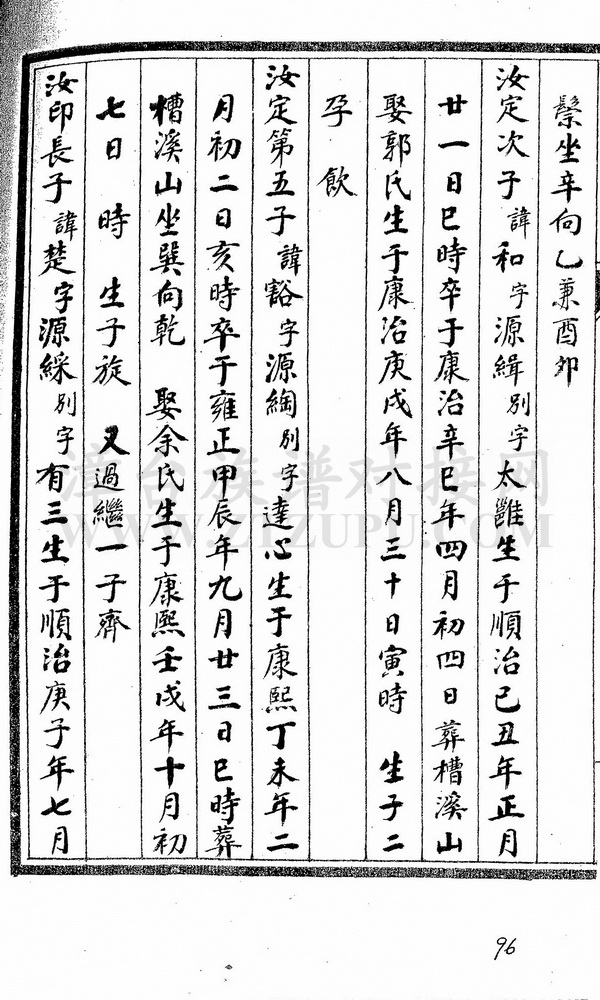 縈坐辛向乙兼酉卯
汝定次子諱和字源緝別字太雝生于順治己丑年正月
廿一日巳時卒于康治辛巳年四月初四日葬槽溪山
娶郭氏生于康治庚戌年八月三十日寅時 生子二
孕 歛
汝定第五子諱谿字源綯別字達心生于康熙丁未年二
月初二日亥時卒于雍正甲辰年九月廿三日巳時葬
槽溪山坐巽向乾 娶余氏生于康熙壬戌年十月初
七日 時 生子旋 又過繼一子齊
汝印長子諱楚字源綵別字有三生于順治庚子年七月
漳台族谱对接网
WWW.ZTZUPU.COM
96